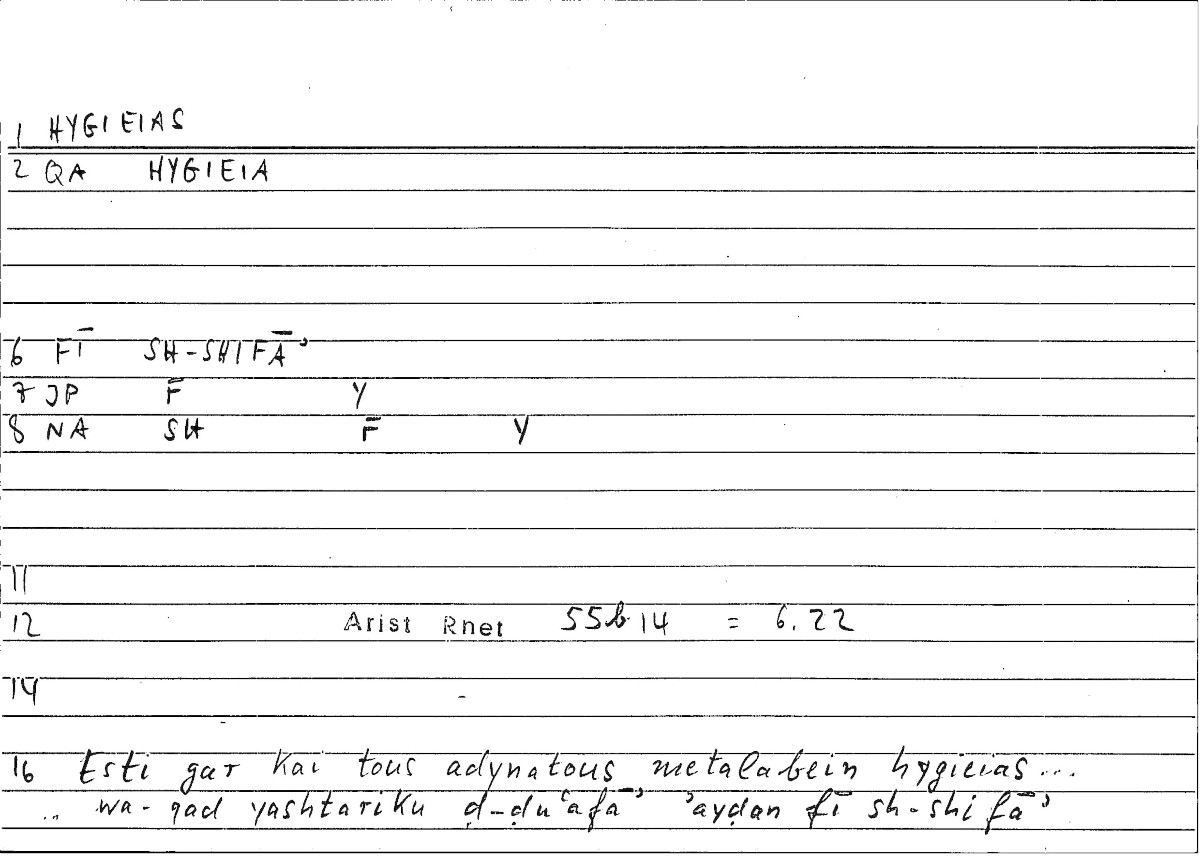 1 HYGIEIAS
2 QA HYGIEIA
6 FĪ SH-SHIFĀʾ
7 JP F̄ Y
8 NA SH F̄ Y
11
12 Arist Rhet 55b14 = 6.22
14
16 Esti gar kai tous adynatous metalabein hygieias...
.. wa-qad yashtariku ḍ-ḍuʿafāʾ ʾayḍan fī sh-shifāʾ